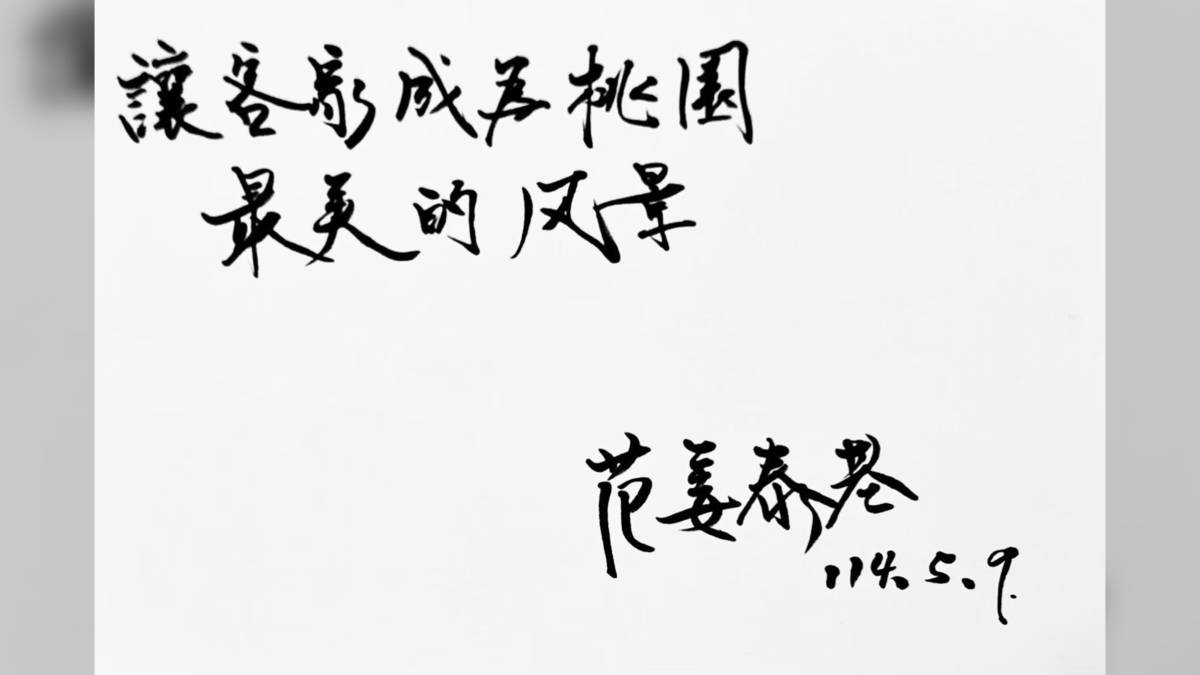 讓客家成為桃園
最美的风景
范姜泰基
114.5.9.